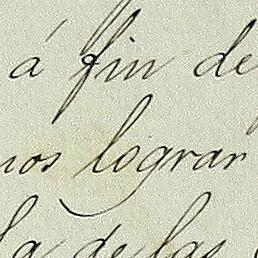 á fin de
nos lograr
la de las